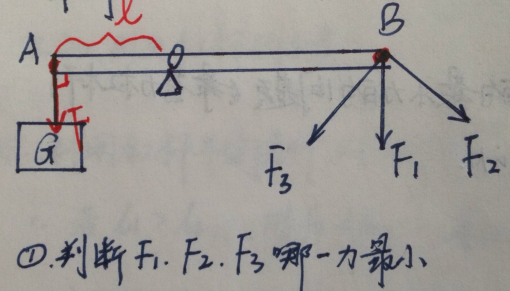 l
A
O
B
F
G
F₃
F₁
F₂
①.判断F₁.F₂.F₃哪一力最小